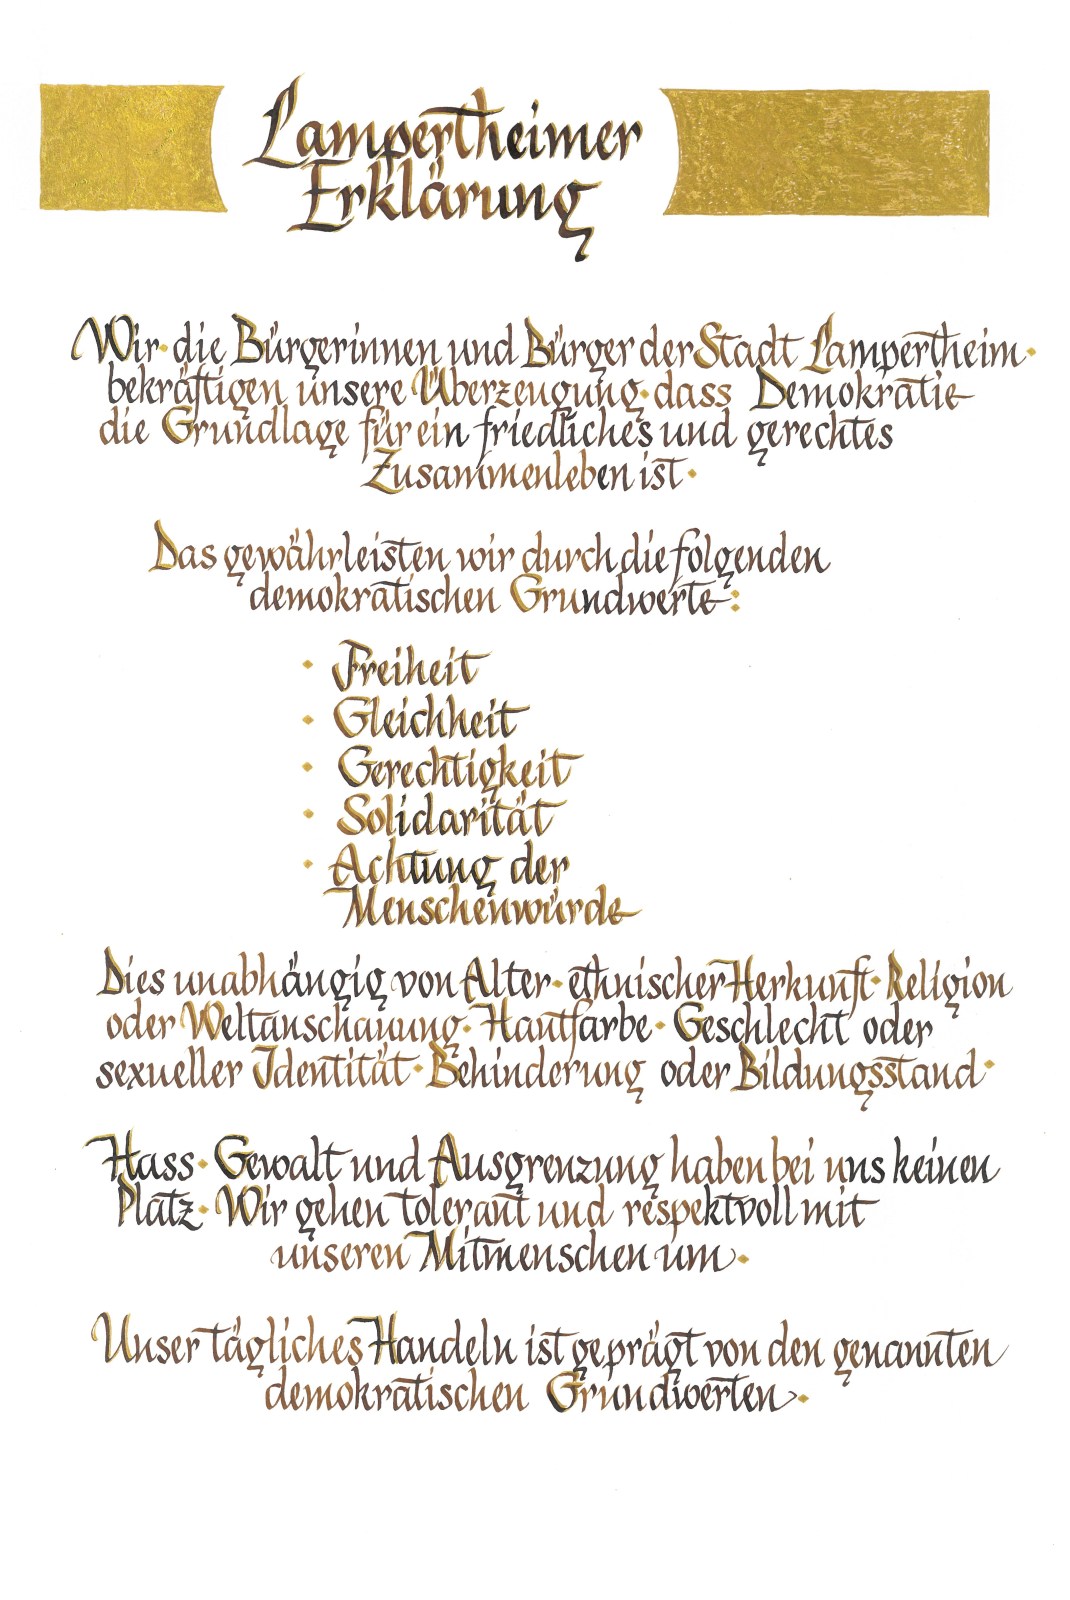 Lampertheimer
Erklärung
Wir· die Bürgerinnen und Bürger der Stadt Lampertheim·
bekräftigen unsere Überzeugung· dass Demokratie
die Grundlage für ein friedliches und gerechtes
Zusammenleben ist·
Das gewährleisten wir durch die folgenden
demokratischen Grundwerte:
· Freiheit
· Gleichheit
· Gerechtigkeit
· Solidarität
· Achtung der
Menschenwürde
Dies unabhängig von Alter· ethnischer Herkunft· Religion
oder Weltanschauung· Hautfarbe· Geschlecht oder
sexueller Identität· Behinderung oder Bildungsstand·
Hass· Gewalt und Ausgrenzung haben bei uns keinen
Platz· Wir gehen tolerant und respektvoll mit
unseren Mitmenschen um·
Unser tägliches Handeln ist geprägt von den genannten
demokratischen Grundwerten·